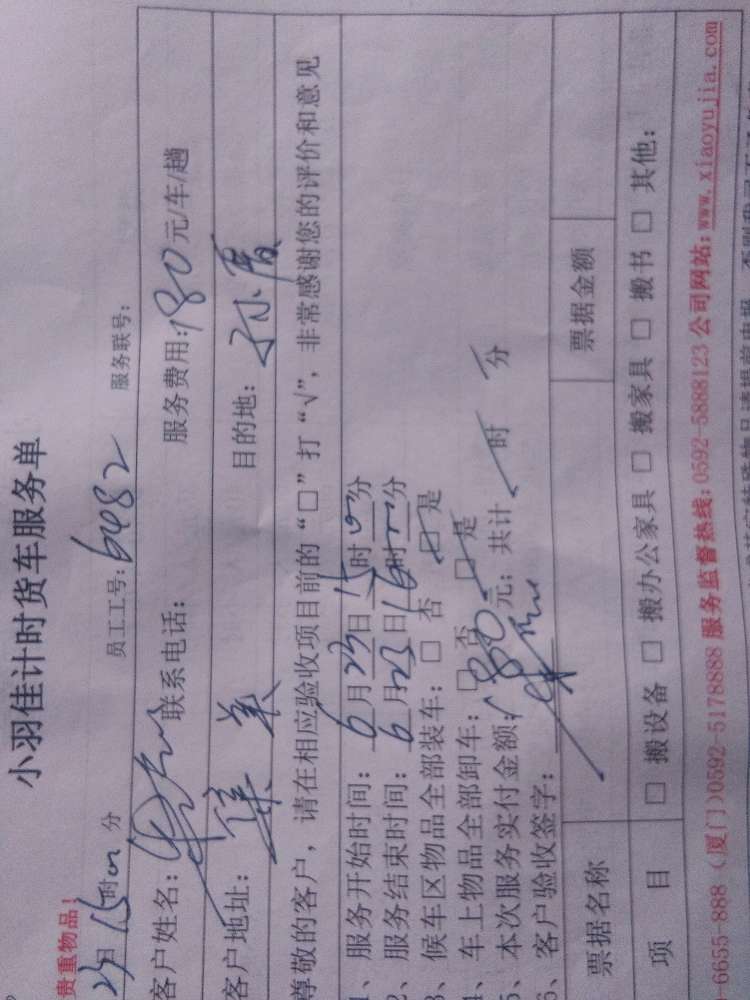 小羽佳计时货车服务单
贵重物品!
23日15时 分 员工工号: 6482 服务联号:
客户姓名: 联系电话: 服务费用: 180元/车/趟
客户地址: 集美 目的地:
尊敬的客户，请在相应验收项目前的“□”打“√”，非常感谢您的评价和意见
1、服务开始时间: 6月23日15时 分
2、服务结束时间: 6月23日16时 分
3、候车区物品全部装车: □ 否 □ 是
4、车上物品全部卸车: □ 否 □ 是
5、本次服务实付金额: 180元; 共计 时 分
6、客户验收签字:
票据名称 票据金额
项 目 □ 搬设备 □ 搬办公家具 □ 搬家具 □ 搬书 □ 其他:
6655-888 (厦门)0592-5178888 服务监督热线: 0592-5888123 公司网站: www.xiaoyujia.com